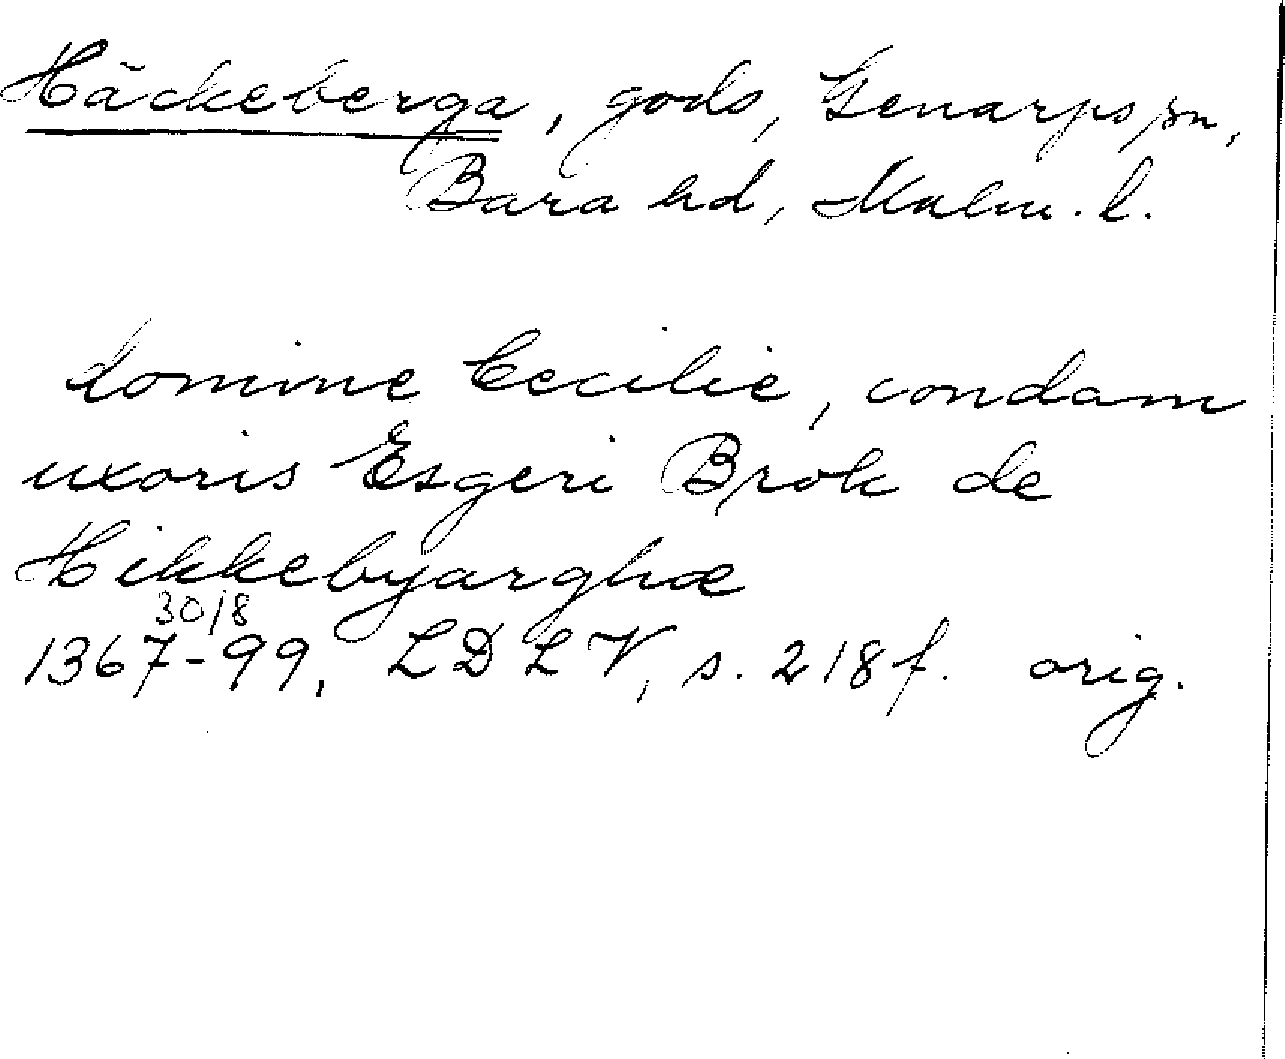 Häckeberga, gods, Genarps sn,
Bara hd, Malm. l.
domine Cecilie, condam
uxoris Esgeri Brok de
Hikkebyarghæ
30/8
1367-99, LDLV, s. 218 f. orig.